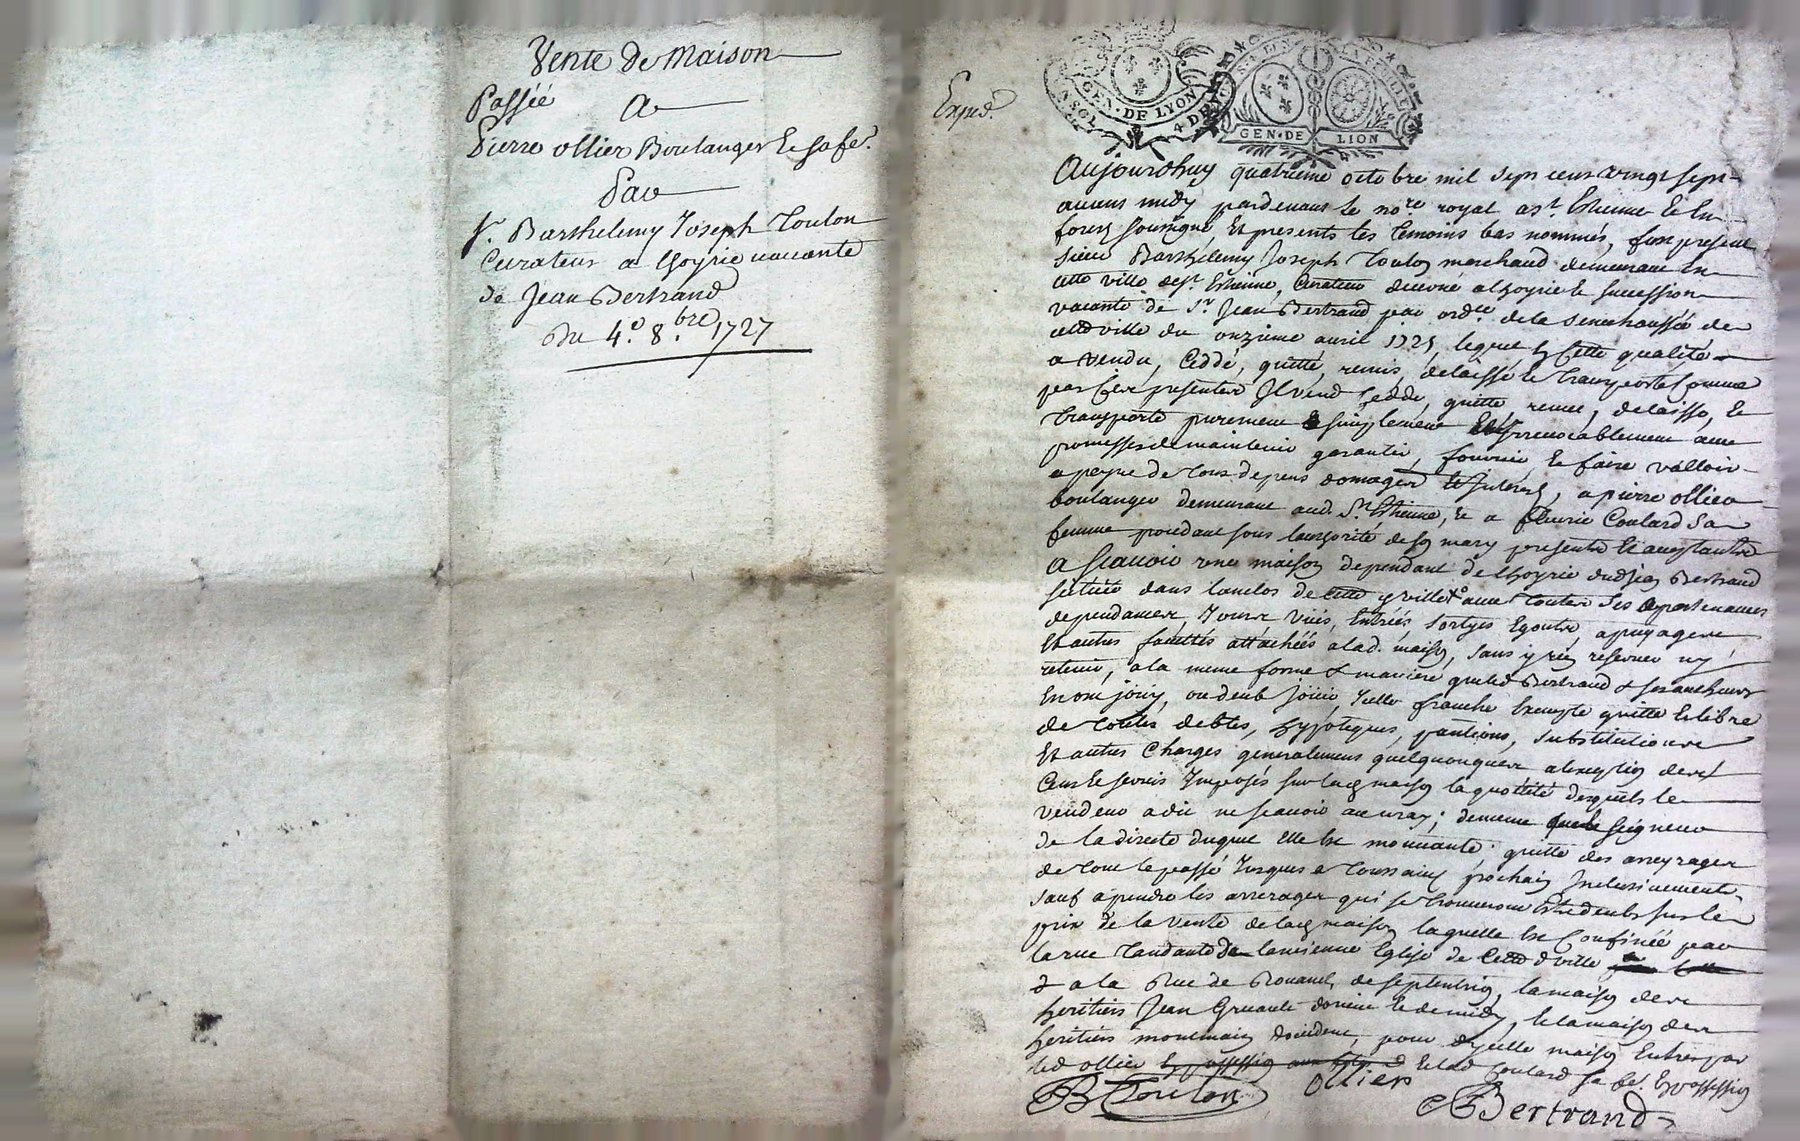 Vente de Maison
Passéé A
Pierre ollier Boulanger Et safe.
Par
Sr. Barthelemy Joseph Toulon
Curateur a Lhoyrie vacante
de Jean Bertrand
Du 4e. 8.bre 1727
Exped.
GEN. DE LYON
GEN. DE LION
Aujourdhuy quatrieme octobre mil sept cens vingt sept
avant midy pardevant le nore royal a st. Estienne En
forest soubsigné Et presents les temoins bas nommés, fut present
sieur Barthélemy Joseph Toulon marchand demeurant En
cette ville de st. Estienne, Curateur decerné a lhoyrie Et succession
vacante de Sr. Jean Bertrand par ordce de la senechaussée de
cette ville du onzieme avril 1725, lequel En Cette qualité
a vendu, Ceddé, quitté, remis, delaissé Et transporté Comme
par Ces presentes Il vend Cedde, quitte remet, delaisse, Et
transporte purement Et simplement Et Irrevocablement avec
promesses de maintenir garantir, fournir Et faire valloir
a peyne de tous depens domages Et Interest, a pierre ollier
boulanger demeurant aud. St. Estienne, Et a fleurie Coulard sa
femme procedant sous lauthorité de son mary presents Et acceptants
A scavoir une maison dependant de lhoyrie dud. Jean Bertrand
scituée dans lenclos de cette ville avec toutes ses apartenances
dependances, Jours vües, Entréés sortyes Egouts, apuyages
Et autres facultés attachéés a lad. maison, sans y rien reserver ny
retenir, a la meme forme & maniere que led Bertrand & ses autheurs
En ont jouy, ou deub jouir, Icelle franche Exempte quitte Et libre
de toutes debtes, hypoteques, pantions, substitutions
Et autres Charges generalement quelquonques a lexception des
Cens Et servis Imposés sur lad. maison la quottité desquels le
vendeur a dit ne scavoir au vray; demeure seigneur
de la directe duquel Elle Est mouvante quitte des arreyrages
de tout le passé Jusques a Toussaint prochain Inclusivement
sauf a prendre les arrerages qui se trouveront Estre deubs sur le
prix de la vente de lad. maison laquelle Est Confinéé par
la rue tandante de lancienne Eglise de Cette ville
& a la Rue de Roannel de septentrion, la maison des
heritiers Jean de midy, Et la maison des
heritiers doccident, pour dycelle maison Entrer par
led ollier Et lad Coulard sa fe. En possession
B Toulon ollier Bertrand